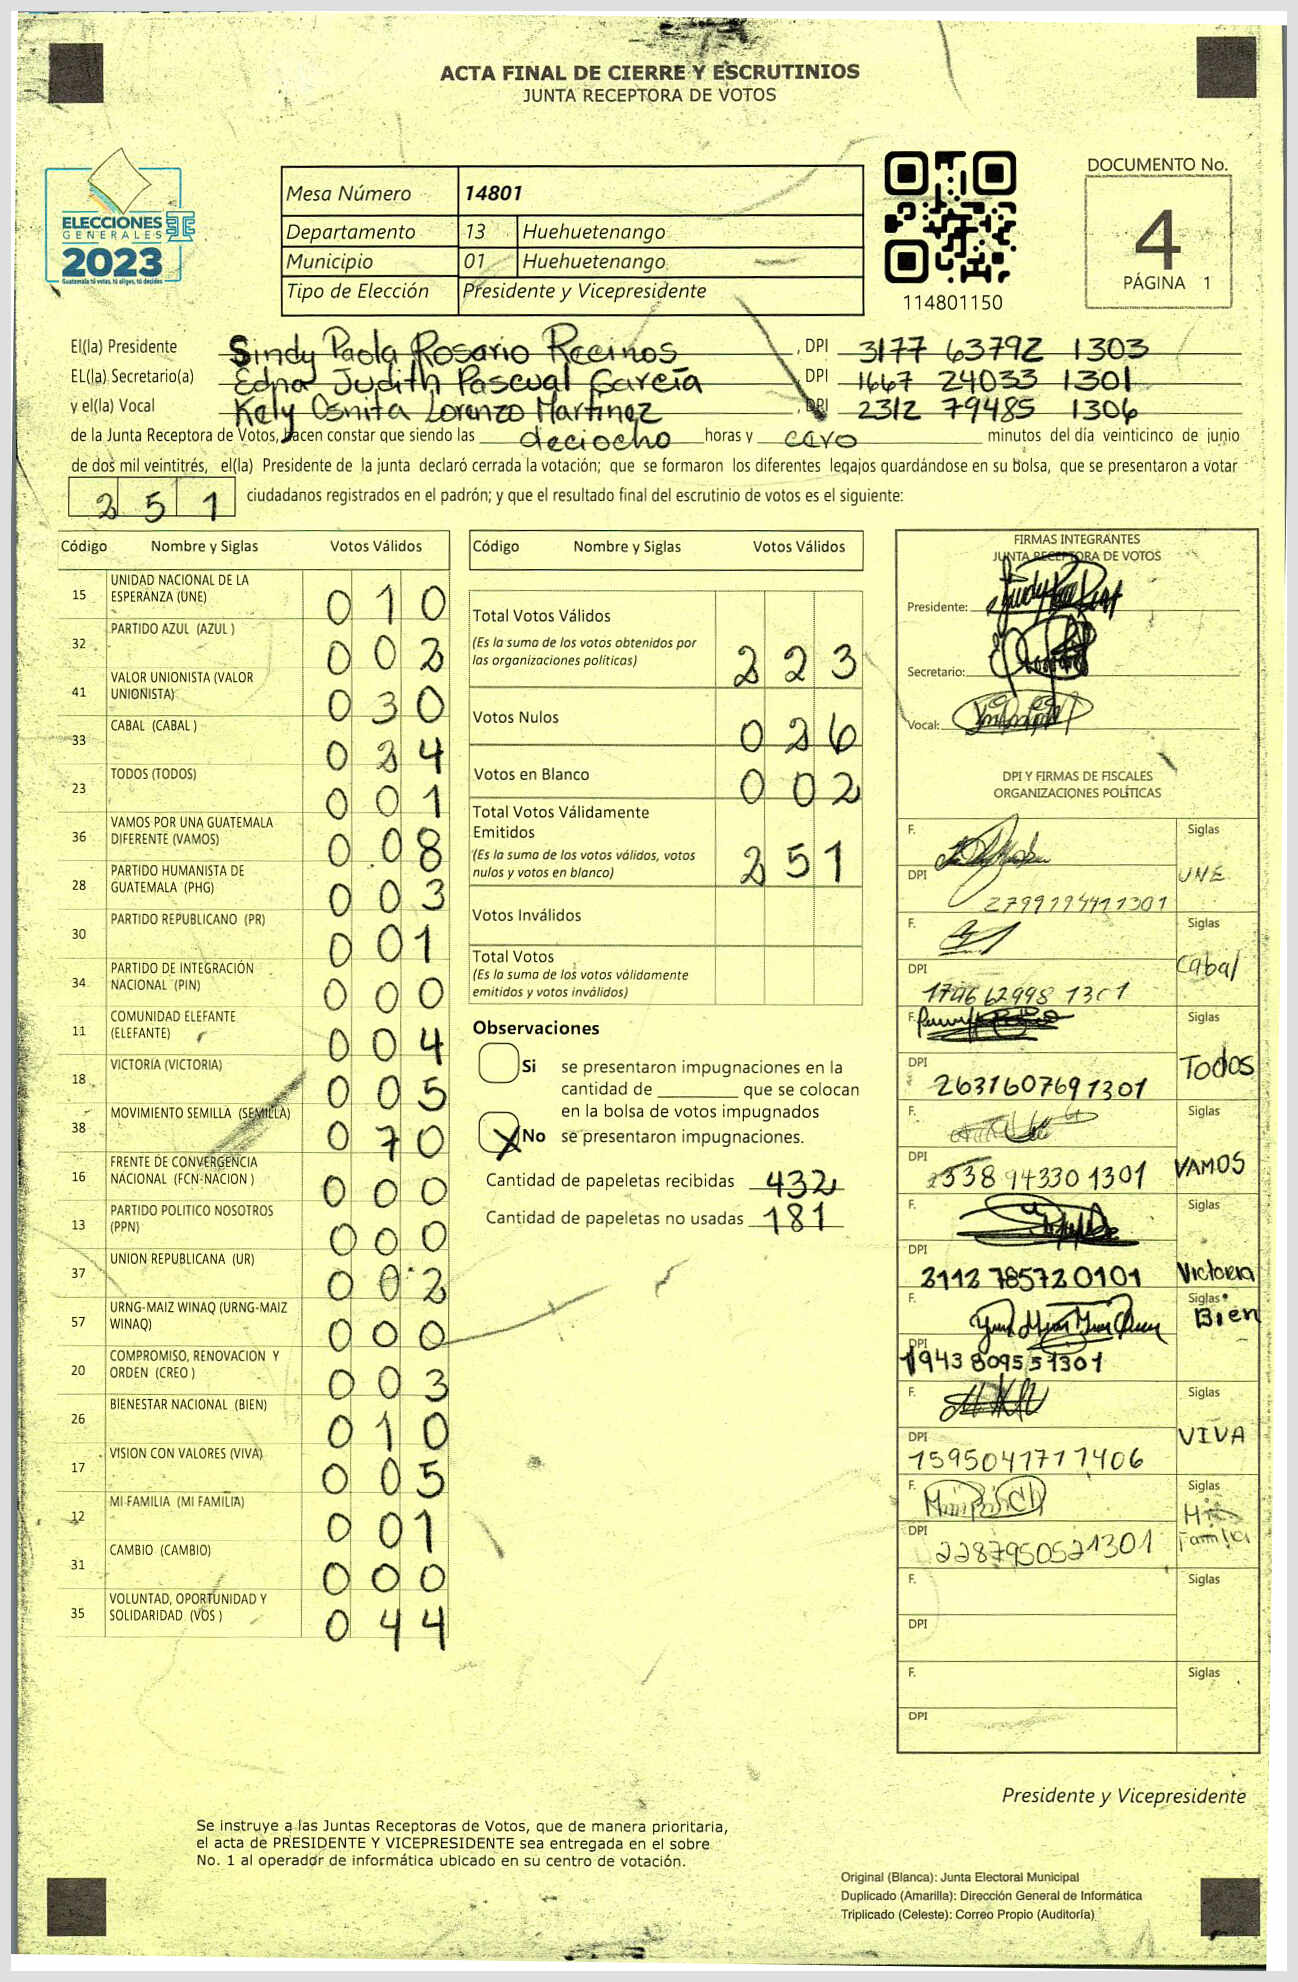 ACTA FINAL DE CIERRE Y ESCRUTINIOS
JUNTA RECEPTORA DE VOTOS
ELECCIONES
GENERALES
2023
Guatemala tú votas, tú eliges, tú decides
Mesa Número 14801
Departamento 13 Huehuetenango
Municipio 01 Huehuetenango
Tipo de Elección Presidente y Vicepresidente
114801150
DOCUMENTO No.
4
PÁGINA 1
El(la) Presidente Sindy Paola Rosario Recinos, DPI 3177 63792 1303
EL(la) Secretario(a) Edna Judith Pascual García, DPI 1667 24033 1301
y el(la) Vocal Kely Osnita Lorenzo Martinez, DPI 2312 79485 1306
de la Junta Receptora de Votos, hacen constar que siendo las deciocho horas y cero minutos del día veinticinco de junio
de dos mil veintitrés, el(la) Presidente de la junta declaró cerrada la votación; que se formaron los diferentes legajos guardándose en su bolsa, que se presentaron a votar
251 ciudadanos registrados en el padrón; y que el resultado final del escrutinio de votos es el siguiente:
Código Nombre y Siglas Votos Válidos
15 UNIDAD NACIONAL DE LA ESPERANZA (UNE) 010
32 PARTIDO AZUL (AZUL ) 002
41 VALOR UNIONISTA (VALOR UNIONISTA) 030
33 CABAL (CABAL ) 024
23 TODOS (TODOS) 001
36 VAMOS POR UNA GUATEMALA DIFERENTE (VAMOS) 008
28 PARTIDO HUMANISTA DE GUATEMALA (PHG) 003
30 PARTIDO REPUBLICANO (PR) 001
34 PARTIDO DE INTEGRACIÓN NACIONAL (PIN) 000
11 COMUNIDAD ELEFANTE (ELEFANTE) 004
18 VICTORIA (VICTORIA) 005
38 MOVIMIENTO SEMILLA (SEMILLA) 070
16 FRENTE DE CONVERGENCIA NACIONAL (FCN-NACION ) 000
13 PARTIDO POLITICO NOSOTROS (PPN) 000
37 UNION REPUBLICANA (UR) 002
57 URNG-MAIZ WINAQ (URNG-MAIZ WINAQ) 000
20 COMPROMISO, RENOVACION Y ORDEN (CREO ) 003
26 BIENESTAR NACIONAL (BIEN) 010
17 VISION CON VALORES (VIVA) 005
12 MI FAMILIA (MI FAMILIA) 001
31 CAMBIO (CAMBIO) 000
35 VOLUNTAD, OPORTUNIDAD Y SOLIDARIDAD (VOS ) 044
Código Nombre y Siglas Votos Válidos
Total Votos Válidos 223
(Es la suma de los votos obtenidos por
las organizaciones políticas)
Votos Nulos 026
Votos en Blanco 002
Total Votos Válidamente
Emitidos 251
(Es la suma de los votos válidos, votos
nulos y votos en blanco)
Votos Inválidos
Total Votos
(Es la suma de los votos válidamente
emitidos y votos inválidos)
Observaciones
Si se presentaron impugnaciones en la
cantidad de ________ que se colocan
en la bolsa de votos impugnados
X No se presentaron impugnaciones.
Cantidad de papeletas recibidas 432
Cantidad de papeletas no usadas 181
FIRMAS INTEGRANTES
JUNTA RECEPTORA DE VOTOS
Presidente:
Secretario:
Vocal:
DPI Y FIRMAS DE FISCALES
ORGANIZACIONES POLÍTICAS
F. Siglas
DPI UNE
F. Siglas
DPI 1796 62998 1301 Cabal
F. Siglas
DPI 2631607691301 Todos
F. Siglas
DPI 2338 94330 1301 VAMOS
F. Siglas
DPI 3112 78572 0101 Victoria
F. Siglas
DPI 1943 80955 1301 Bien
F. Siglas
DPI 1595041711406 VIVA
F. Siglas
DPI 2287950521301 Mi Familia
F. Siglas
DPI
F. Siglas
DPI
Presidente y Vicepresidente
Se instruye a las Juntas Receptoras de Votos, que de manera prioritaria,
el acta de PRESIDENTE Y VICEPRESIDENTE sea entregada en el sobre
No. 1 al operador de informática ubicado en su centro de votación.
Original (Blanca): Junta Electoral Municipal
Duplicado (Amarilla): Dirección General de Informática
Triplicado (Celeste): Correo Propio (Auditoría)